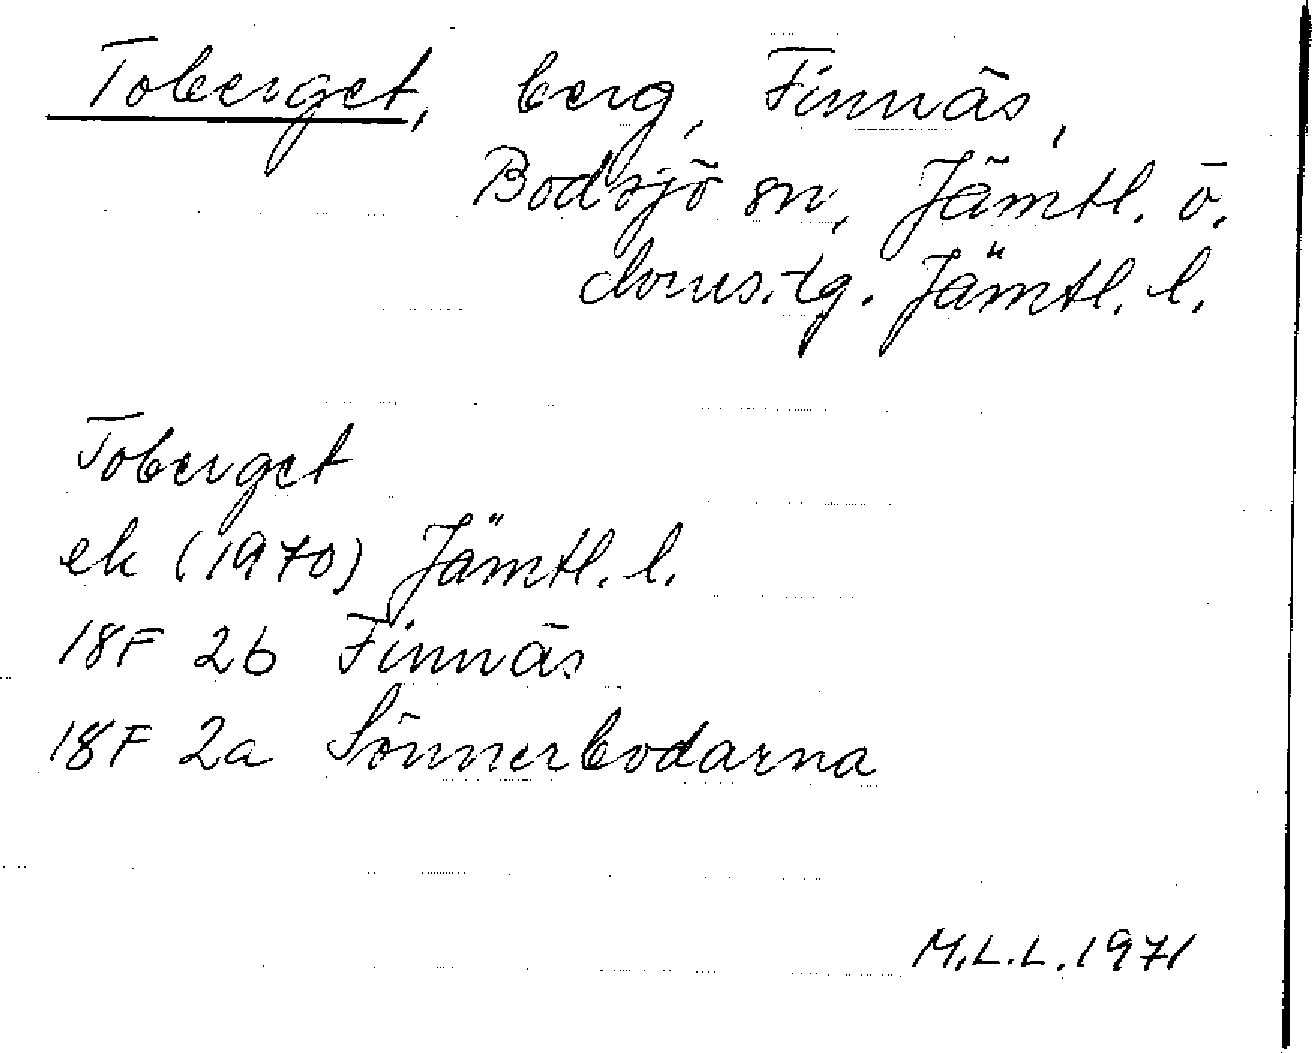 Toberget, berg, Finnäs,
Bodsjö sn, Jämtl. ö.
doms.tg. Jämtl. l.
Toberget
ek (1970) Jämtl. l.
18F 2b Finnäs
18F 2a Sönnerbodarna
M.L.L. 1971